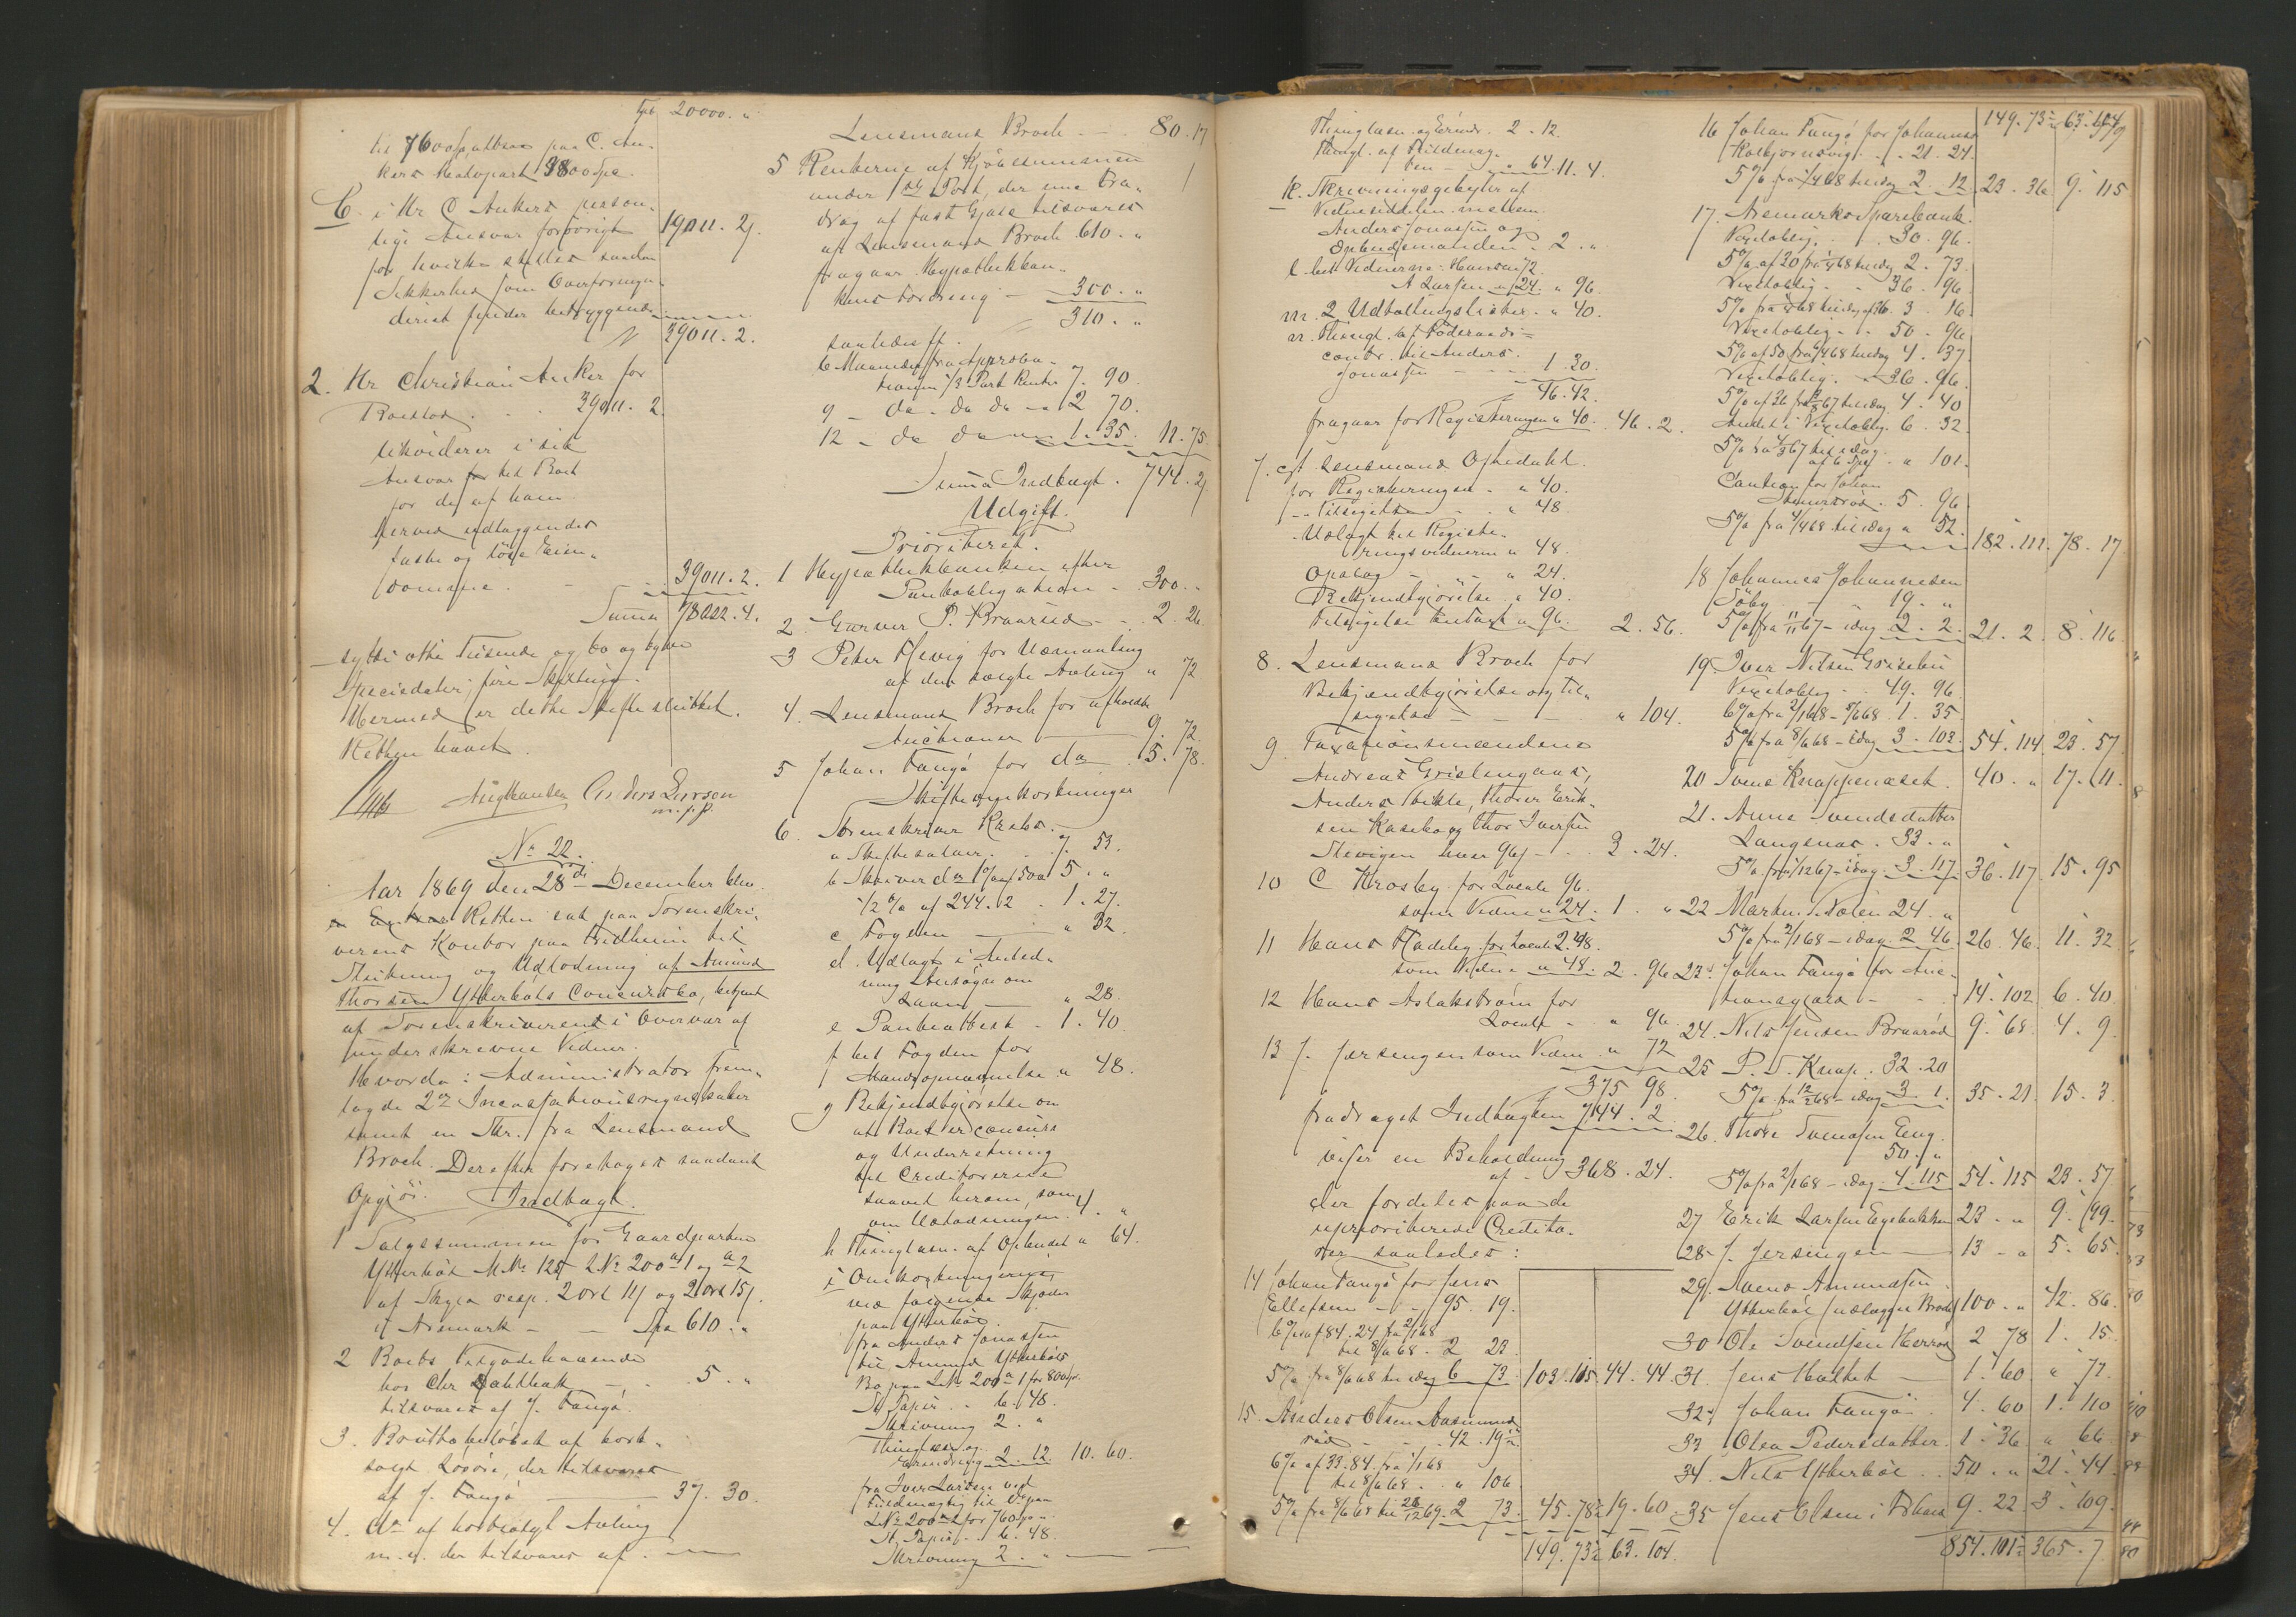 Spd 20000. "
til 7600 paa C. An-
kers Halvpart 3800 Spd.
C. i Hr C Ankers person-
lige Ansvar forøvrigt 19011. 2
for hvilke stilles saadan
Sikkerhed som Overformyn-
deriet finder betryggende
39011. 2.
2. Hr Christian Anker for
Boeslod . . 39011. 2
likviderer i sit
Ansvar for til Boet
for de af ham
herved udlæggendes
faste og løse Eien-
domme. - - 39011. 2.
Summa 78022. 4.
- sytti otte Tusinde og to og tyve
Speciedaler, fire Skilling.
Hermed er dette Skifte sluttet.
Retten hævet.
Aug Hansen Anders Larsen
m. f. P.
No 22.
Aar 1869 den 28de December blev
Retten sat paa Sorenskri-
verens Kontor paa Fridheim til
Slutning og Udlodning af Amund
Thorsen Ytterbøls Concursbo, betjent
af Sorenskriveren i Overvær af
underskrevne Vidner.
Hvorda: Administrator frem-
lagde 2de Incassationsregnskaber
samt en Skr. fra Lensmand
Broch. Derefter foretoges saadant
Opgjör. Indtægt.
1 Salgssummen for Gaardparten
Ytterböl M.No 125 L No 200a 1 og a 2
af Skyld resp. 2 ort 11 og 2 ort 15
i Aremark - - Spd 610. "
2 Boets Tilgodehavende
hos Chr - . 5. "
tilsvares af J. Tangö.
3. Bruttobeløbet af bort-
solgt Løsøre, der tilsvares
af J. Tangö - 37. 30.
4. do af bortsolgt Avling
m. v. der tilsvares af . -
Lensmand Broch - . 80. 17
5 Renterne af Kjøbesummen
under 1ste Post, der
drag af fast Gods tilsvares
af Lensmand Broch 610. "
fragaar Hypothekban-
kens Fordring - 300. "
310. "
saaledes
6 Maaneder fra Approba-
tionen 1/3 Part Renter 7. 90.
9 - do - do do - " 2 70.
12 - do do " " 1. 35. 11. 75
Summa Indtægt. 744. 2
Udgift.
Prioriteret.
1 Hypothekbanken efter
Pantobligation - 300. "
2. Garver P. Braarud - . 2. 26
3 Peter Hevig for Udmaaling
af den solgte Avling " 72
4. Lensmand Broch for afholdte
Auctioner - 9. 72.
5 Johan Tangö for do . 5. 78.
Skifteomkostninger
6. Sorenskriver
a Skiftesalær. . . 7. 53.
b Skriver der 1% af 500 5. "
1/2 % af 244. 2 . 1. 27.
c Fogden - " 32.
d. Udlagt i Anled-
ning Ansøgn om
Laan - " 28.
e Panteattest - 1. 40.
f til Fogden for
Mandsopnævnelse " 48.
g Bekjendtgjørelse om
at Boet er concurs
og Underretning
til Creditorerne
saavel herom, som
om Udlodningen. 4. "
h Thinglæsn. af Opbudet " 64.
i Omkostningerne
ved følgende Skjøder
paa Ytterböl.
fra Anders Jonassen
til Amund Ytterböls
Bo paa L No 200a 1 for 800
St. Papir . . 6. 48.
Skrivning 2. "
Thinglæsn og
Erindring 2. 12 10. 60.
fra Iver Larsen ved
Fuldmægtig til Do paa
L No 200a 2 for 760
St. Papir - . 6. 48.
Skrivning 2. " -
Thinglæsn. og Erindr. 2. 12.
Thingl. af Fuldmag-
ten - . " 64. 11. 4.
k. Skrivningsgebyhr af
Anders Jonassen og
Opbudsmanden . 2 . "
l. til Vidnerne: Hansen 72.
A Larsen " 24. " 96.
m. 2 Udtællingslister. " 40.
n. Thingl. af Föderaads-
contr. til Anders
Jonassen - - 1. 30.
46. 42.
fragaar for Registreringen " 40. 46. 2.
7. cst Lensmand Opsedahl
for Registreringen . " 40.
- Tilsigelse . . " 48.
- Udlagt til Registe-
ringsvidnerne " 48.
Opslag - - " 24.
Bekjendtgjörelse . " 40.
Tilsigelse " 96. 2. 56.
8. Lensmand Broch for
Bekjendtgjörelse og Til-
sigelse - - - " 104.
9. Taxationsmændene
Andreas
Anders Thorer Erik-
sen Kaseboog Thor Iversen
Stevigen hver 96 - . 3. 24.
10 C Krosby for Locale 96.
som Vidne " 24. 1. "
11 Hans Fladeby for Locale 2. 48.
som Vidne " 48. 2. 96
12 Hans Aslakström for
Locale - " 96.
13 J. Jersengen som Vidne " 72
375 98.
fradraget Indtægten 744. 2
viser en Beholdning
af - 368. 24.
der fordeles paa de
uprioriterede Credito-
rer saaledes:
14 Johan Tangö for Jens
Ellefsen - - 95. 19.
6% af 84. 24 fra 2/1 68
til 8/6 68. 2 23
5% fra 8/6 68 til idag 6 73. 103. 115 44. 44
15. Anders Olsen Aasmund-
röd - - . 42. 19
6% af 33. 84. fra 1/1 68
til 8/6 68. . " 106
5% fra 8/6 68 til 28/12 69. 2 73. 45. 78 19. 60
149. 73 63. 104.
149. 73 63. 104
16 Johan Tangö for Johannes
Kolbjørnsvig. . . 21. 24.
5% fra 1/4 68 til idag 2. 12 23. 36 9. 115
17. Aremarks Sparebank.
Vexeloblig. . . 30. 96.
5% af 30 fra 1/4 68 til idag 2. 73.
Vexeloblig - . 36. 96.
5% fra 68 til idag af 36. 3. 16.
Vexeloblig - . 50. 96
5% af 50 fra 1/4 68 til idag 4. 37.
Vexeloblig. - 36. 96.
5% af 36 fra 67 til idag 4. 40
Andel i Vexeloblig. 6. 32.
5% fra 67 til idag
af 6 Spd . " 101.
Caution for Johan
5. 96
5% fra 4/4 68 til idag " 52. 182. 111. 78. 17
18 Johannes Johannesen
Söby. - 19. "
5% fra 11/11 67 - idag 2. 2. 21. 2 8. 116
19. Iver Nilsen Grisebu
Vexeloblig - . 49. 96.
6% fra 2/1 68 - 8/6 68. 1. 35.
5% fra 8/6 68 - idag 3. 103. 54. 114 23. 57
20 Svend Knappenæset. 40. " 17. 11.
21. Anne Svendsdatter
Langenes. 33. "
5% fra 1/12 67 - idag. 3. 117. 36. 117 15. 95
22 Martin 24. "
5% fra 2/1 68 - idag. 2. 46. 26. 46. 11. 32
23. Johan Tangö for Auc-
tionsgjæld - . . 14. 102 6. 40.
24. Nils Jensen Braaröd 9. 68. 4. 9.
25 P. T. Knap. 32. 20
5% fra 12/2 68 - idag 3. 1. 35. 21. 15. 3.
26. Thore Svendsen Eng.
50. "
5% fra 2/1 68 - idag. 4. 115 54. 115 23. 57
27 Erik Larsen Egebakken 23. " 9. 99.
28. J. Jersengen - 13 . " 5. 65.
29. Svend Amundsen
Ytterböl 100. " 42. 86.
30 Ole Svendsen Herröd 2 78 1. 15.
31. Jens Holthet - 1. 60. " 77.
32. Johan Tangö . 4. 60 1. 110
33 Olea Pedersdatter. 1. 36 " 66
34. Nils Ytterböl . . 50. " 21. 44.
35 Jens Olsen i 9. 22 3. 109.
854. 101 365. 7.